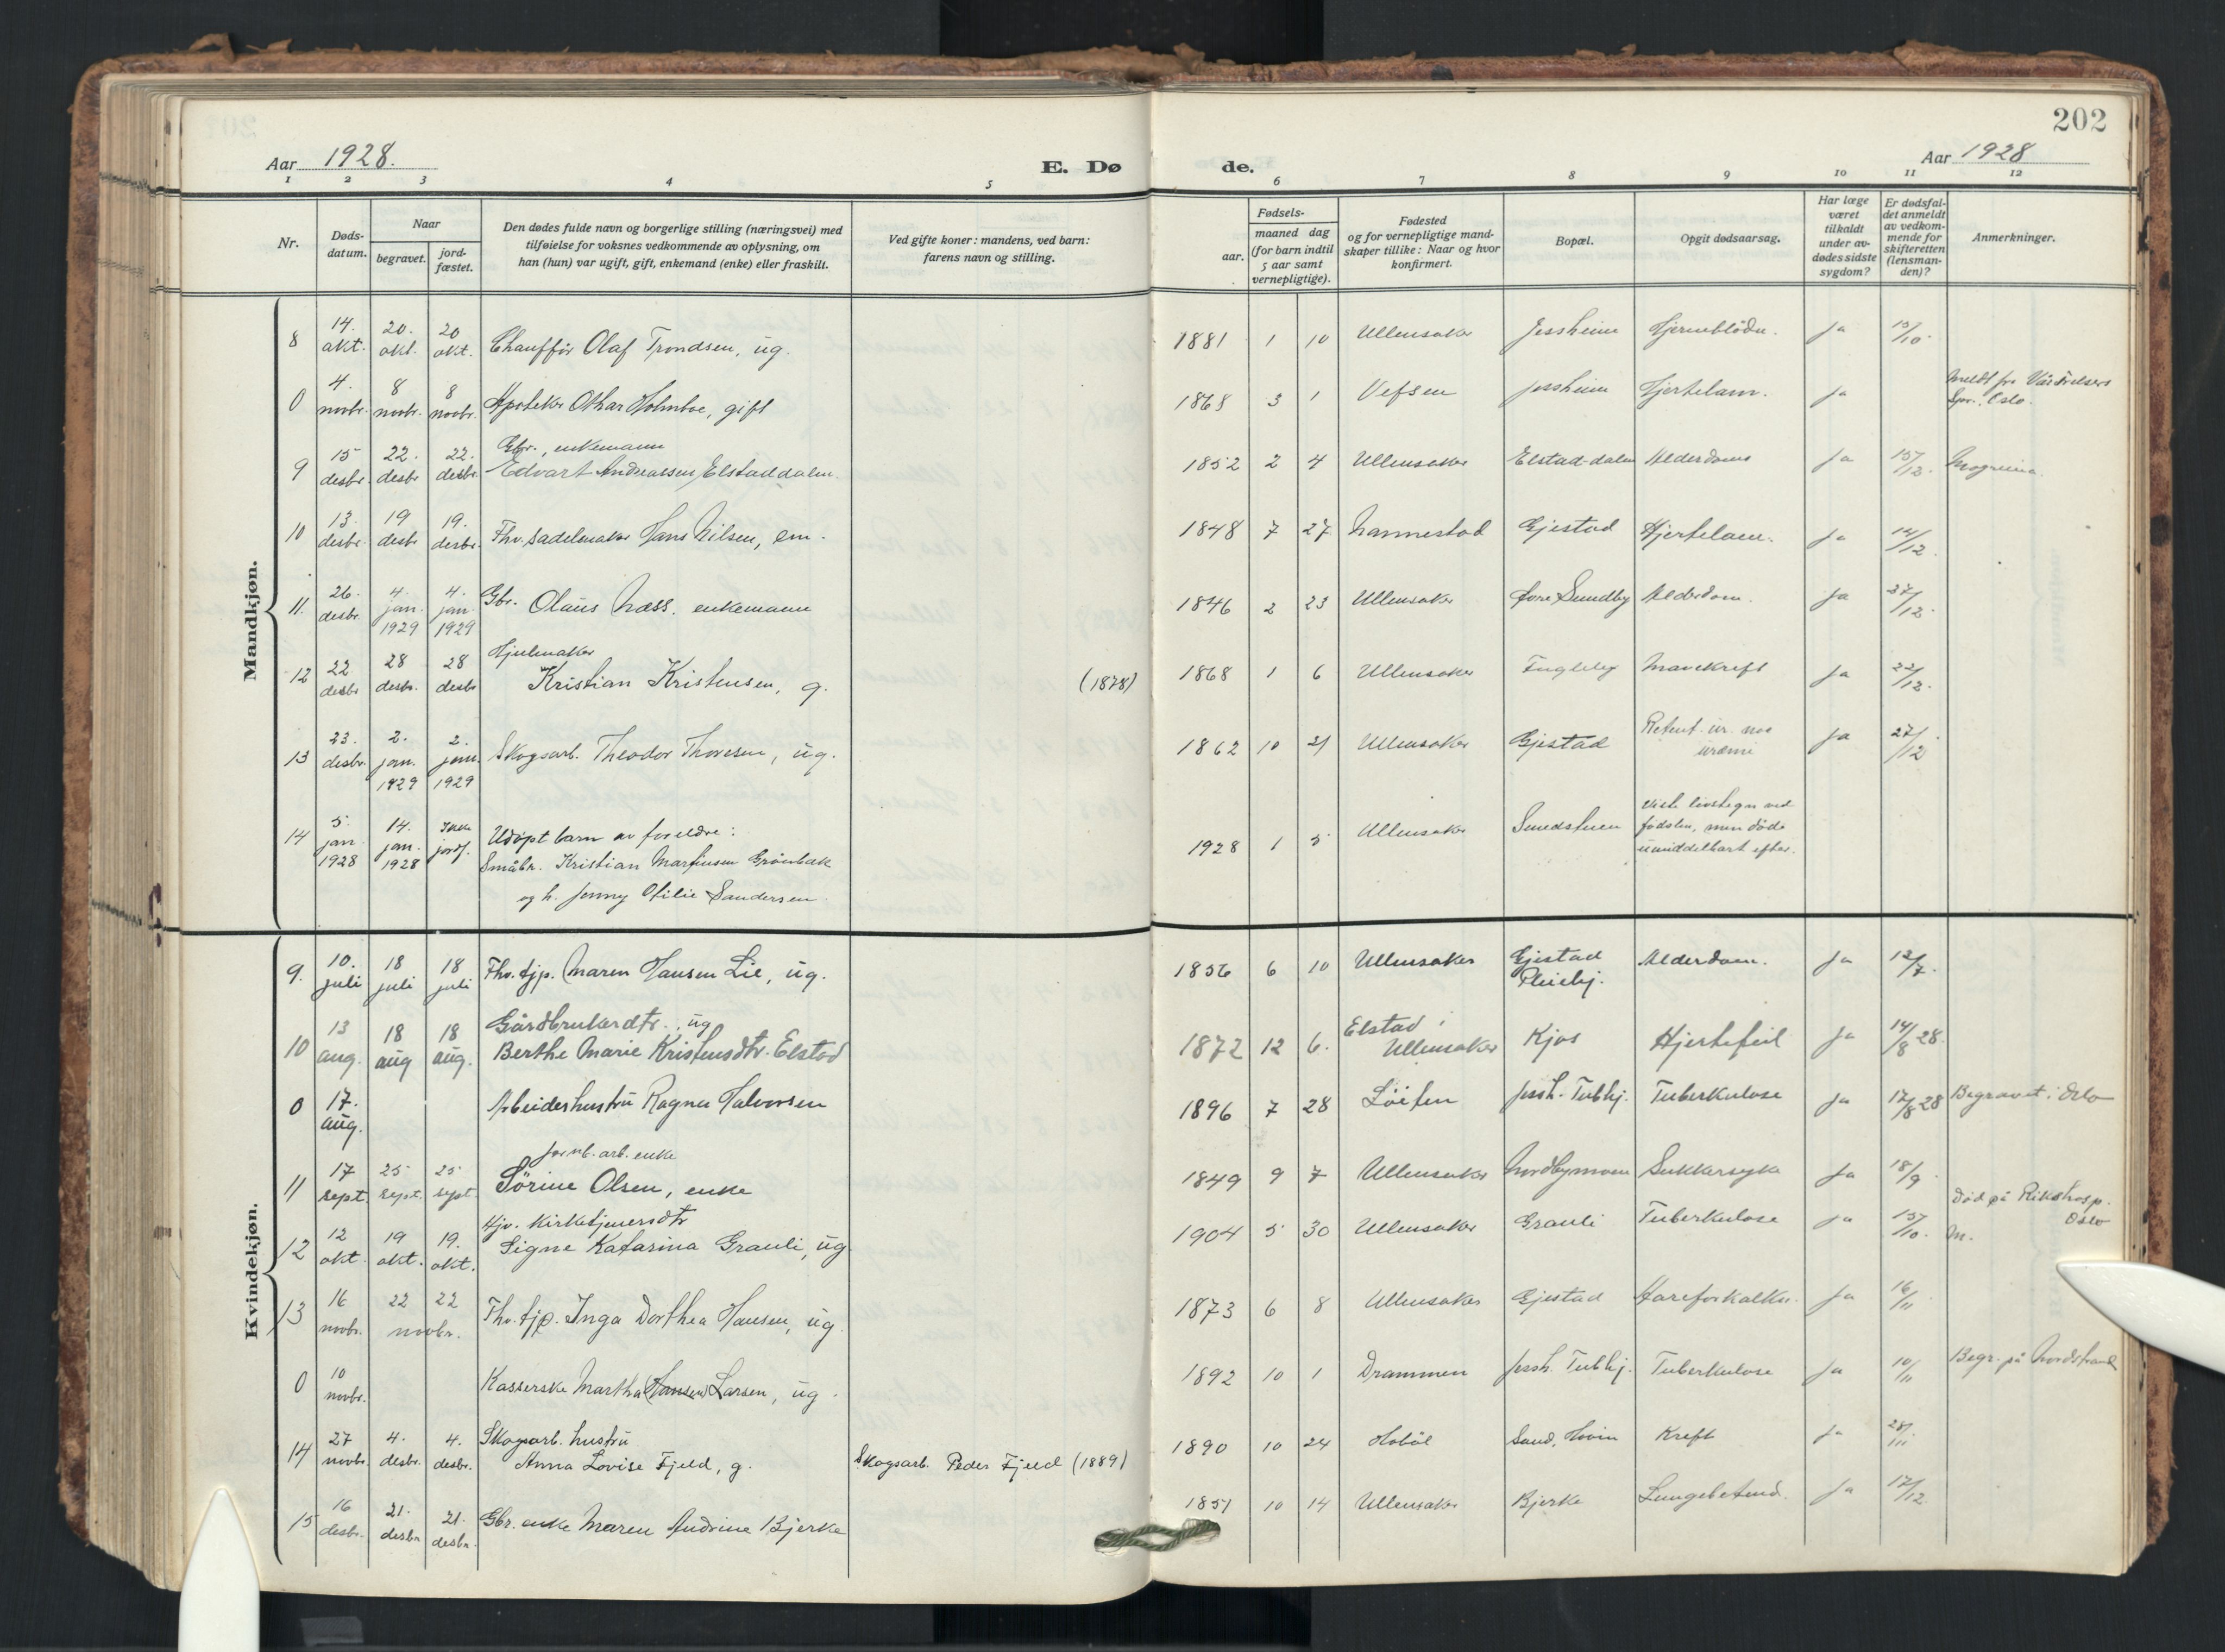 202
Aar 1928.
E. Dø
de.
Aar 1928
1 2 3 4 5 6 7 8 9 10 11 12
Nr.
Døds-
datum.
Naar
begravet.
jord-
fæstet.
Den dødes fulde navn og borgerlige stilling (næringsvei) med
tilføielse for voksnes vedkommende av oplysning, om
han (hun) var ugift, gift, enkemand (enke) eller fraskilt.
Ved gifte koner: mandens, ved barn:
farens navn og stilling.
Fødsels-
aar.
maaned dag
(for barn indtil
5 aar samt
vernepligtige).
Fødested
og for vernepligtige mand-
skaper tillike: Naar og hvor
konfirmert.
Bopæl.
Opgit dødsaarsag.
Har læge
været
tilkaldt
under av-
dødes sidste
sygdom?
Er dødsfal-
det anmeldt
av vedkom-
mende for
skifteretten
(lensman-
den)?
Anmerkninger.
Mandkjøn.
8 14. okt. 20. okt. 20 okt. Chauffør Olaf Trondsen, ug. 1881 1 10 Ullensaker Jessheim Hjerneblødn. Ja 15/10
0 4. novbr. 8 novbr. 8 novbr. Apoteker Othar Holmboe, gift 1868 3 1 Vefsen Jessheim Hjertelam. Ja Meldt fra Vår Frelsers
Oslo.
9 15 desbr. 22. desbr 22. desbr. Gbr., enkemann
Edvart Andreassen Elstaddalen. 1852 2 4 Ullensaker Elstad-dalen Alderdoms Ja 15/12. Mogreina.
10 13. desbr. 19 desbr 19. desbr. Fhv. sadelmaker Hans Nilsen, em. 1848 7 27 Nannestad Gjestad Hjertelam. Ja 14/12.
11. 26. desbr. 4. jan. 1929 4. jan. 1929 Gbr. Olaus Næss. enkemann 1846 2 23 Ullensaker Sundby Alderdom. Ja 27/12.
12 22 desbr 28 desbr. 28 desbr Hjulmaker
Kristian Kristensen, g. (1878) 1868 1 6 Ullensaker Fugleby Mavekreft Ja 22/12.
13 23. desbr. 2. jan. 1929 2. jan. 1929 Skogsarb. Theodor Thoresen, ug. 1862 10 21 Ullensaker Gjestad Retent. ur.
uræmi Ja 27/12
14 5. jan 1928 14. jan. 1928 Ikke jordf. Udøpt barn av foreldre:
Småbr. Kristian Martinsen Grønbæk
og h. Jenny Otilie Sandersen. 1928 1 5 Ullensaker Smedstuen Viste livstegn ved
fødslen, men døde
umiddelbart efter.
Kvindekjøn.
9. 10. juli 18 juli 18 juli Fhv. tjp. Maren Hansen Lie, ug. 1856 6 10 Ullensaker Gjestad
Pleiehj. Alderdom. Ja 12/7.
10 13 aug. 18 aug 18 aug. Gårdbrukerdtr., ug
Berthe Marie Kristensdtr. Elstad 1872 12 6. Elstad i
Ullensaker Kjos Hjertefeil Ja 14/8 28.
0 17. aug. Arbeiderhustru Ragna Halvorsen 1896 7 28 Løiten Jessh. Tubhj. Tuberkulose Ja 17/8 28 Begravet i Oslo
11 17 sept. 25 sept. 25 sept. jernb. arb. enke
Sørine Olsen, enke 1849 9 7 Ullensaker Nordbymoen Sukkersyke Ja 18/9
12 12 okt. 19 okt. 19. okt. Hjv. kirketjenersdtr
Signe Katarina Grauli, ug 1904 5 30 Ullensaker Grauli Tuberkulose Ja 15/10. Død på Rikshosp.
Oslo
M.
13 16 novbr. 22 22 novbr. Fhv. tjp. Inga Dorthea Hansen, ug. 1873 6 8 Ullensaker Gjestad Åreforkalkn. Ja 16/11
0 10 novbr. Kasserske Martha (Hansen) Larsen, ug. 1892 10 1 Drammen Jessh. Tubhj. Tuberkulose Ja 10/11 Begr. på Nordstrand
14 27 novbr. 4. desbr. 4. desbr. Skogsarb. hustru
Anna Lovise Fjeld, g. Skogsarb. Peder Fjeld (1889) 1890 10 24 Hobøl Sand, Hovin Kreft Ja 28/11
15 16 desbr. 21. desbr 21. desbr. Gbr. enke Maren Andrine Bjerke 1851 10 14 Ullensaker Bjerke Lungebetend. Ja 17/12.